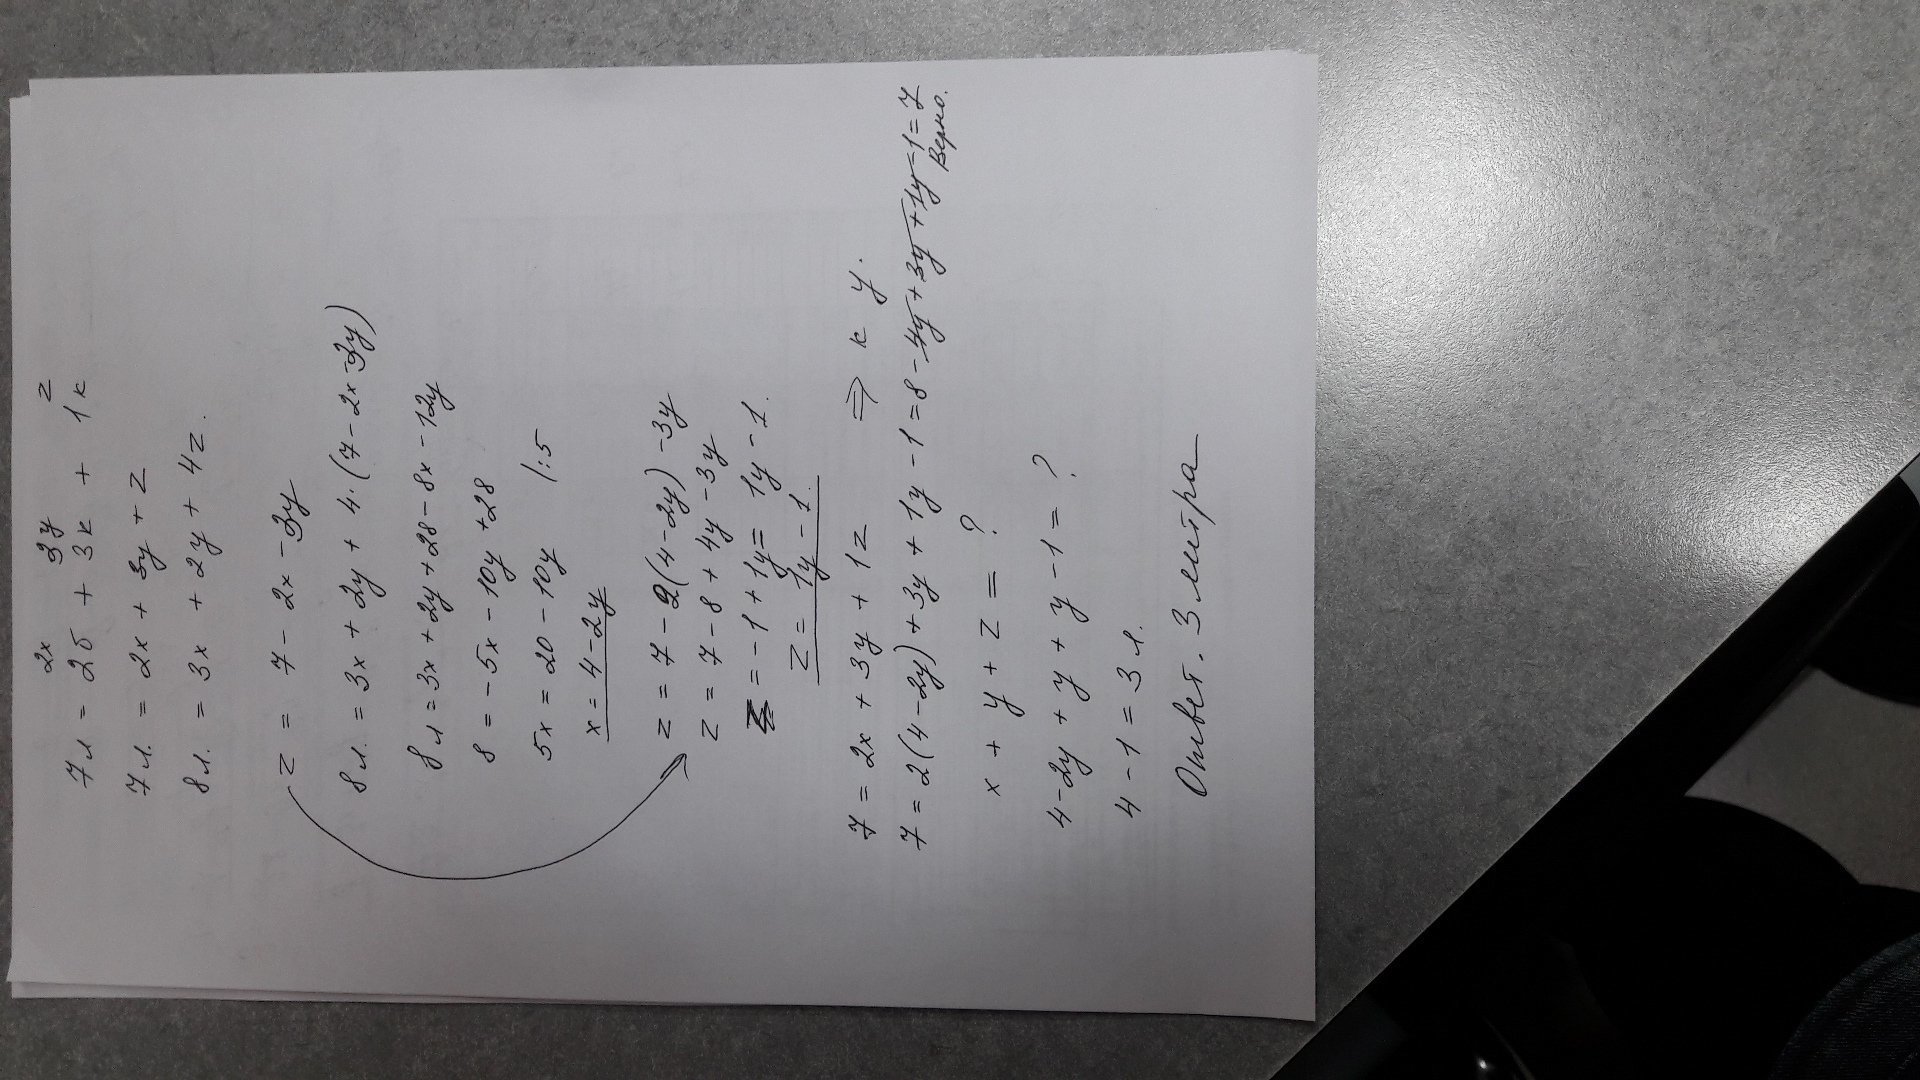 2x 3y z
7л = 2б + 3к + 1к
7л. = 2x + 3y + z
8л. = 3x + 2y + 4z.
z = 7 - 2x - 3y
8л. = 3x + 2y + 4·(7-2x-3y)
8л = 3x + 2y + 28 - 8x - 12y
8 = -5x - 10y + 28
5x = 20 - 10y /:5
x = 4 - 2y
z = 7 - 2(4-2y) - 3y
z = 7 - 8 + 4y - 3y
z = -1 + 1y = 1y - 1.
z = 1y - 1.
7 = 2x + 3y + 1z ⇒ к y.
7 = 2(4-2y) + 3y + 1y - 1 = 8 - 4y + 3y + 1y - 1 = 7
Верно.
x + y + z = ?
4-2y + y + y - 1 = ?
4 - 1 = 3 л.
Ответ. 3 литра